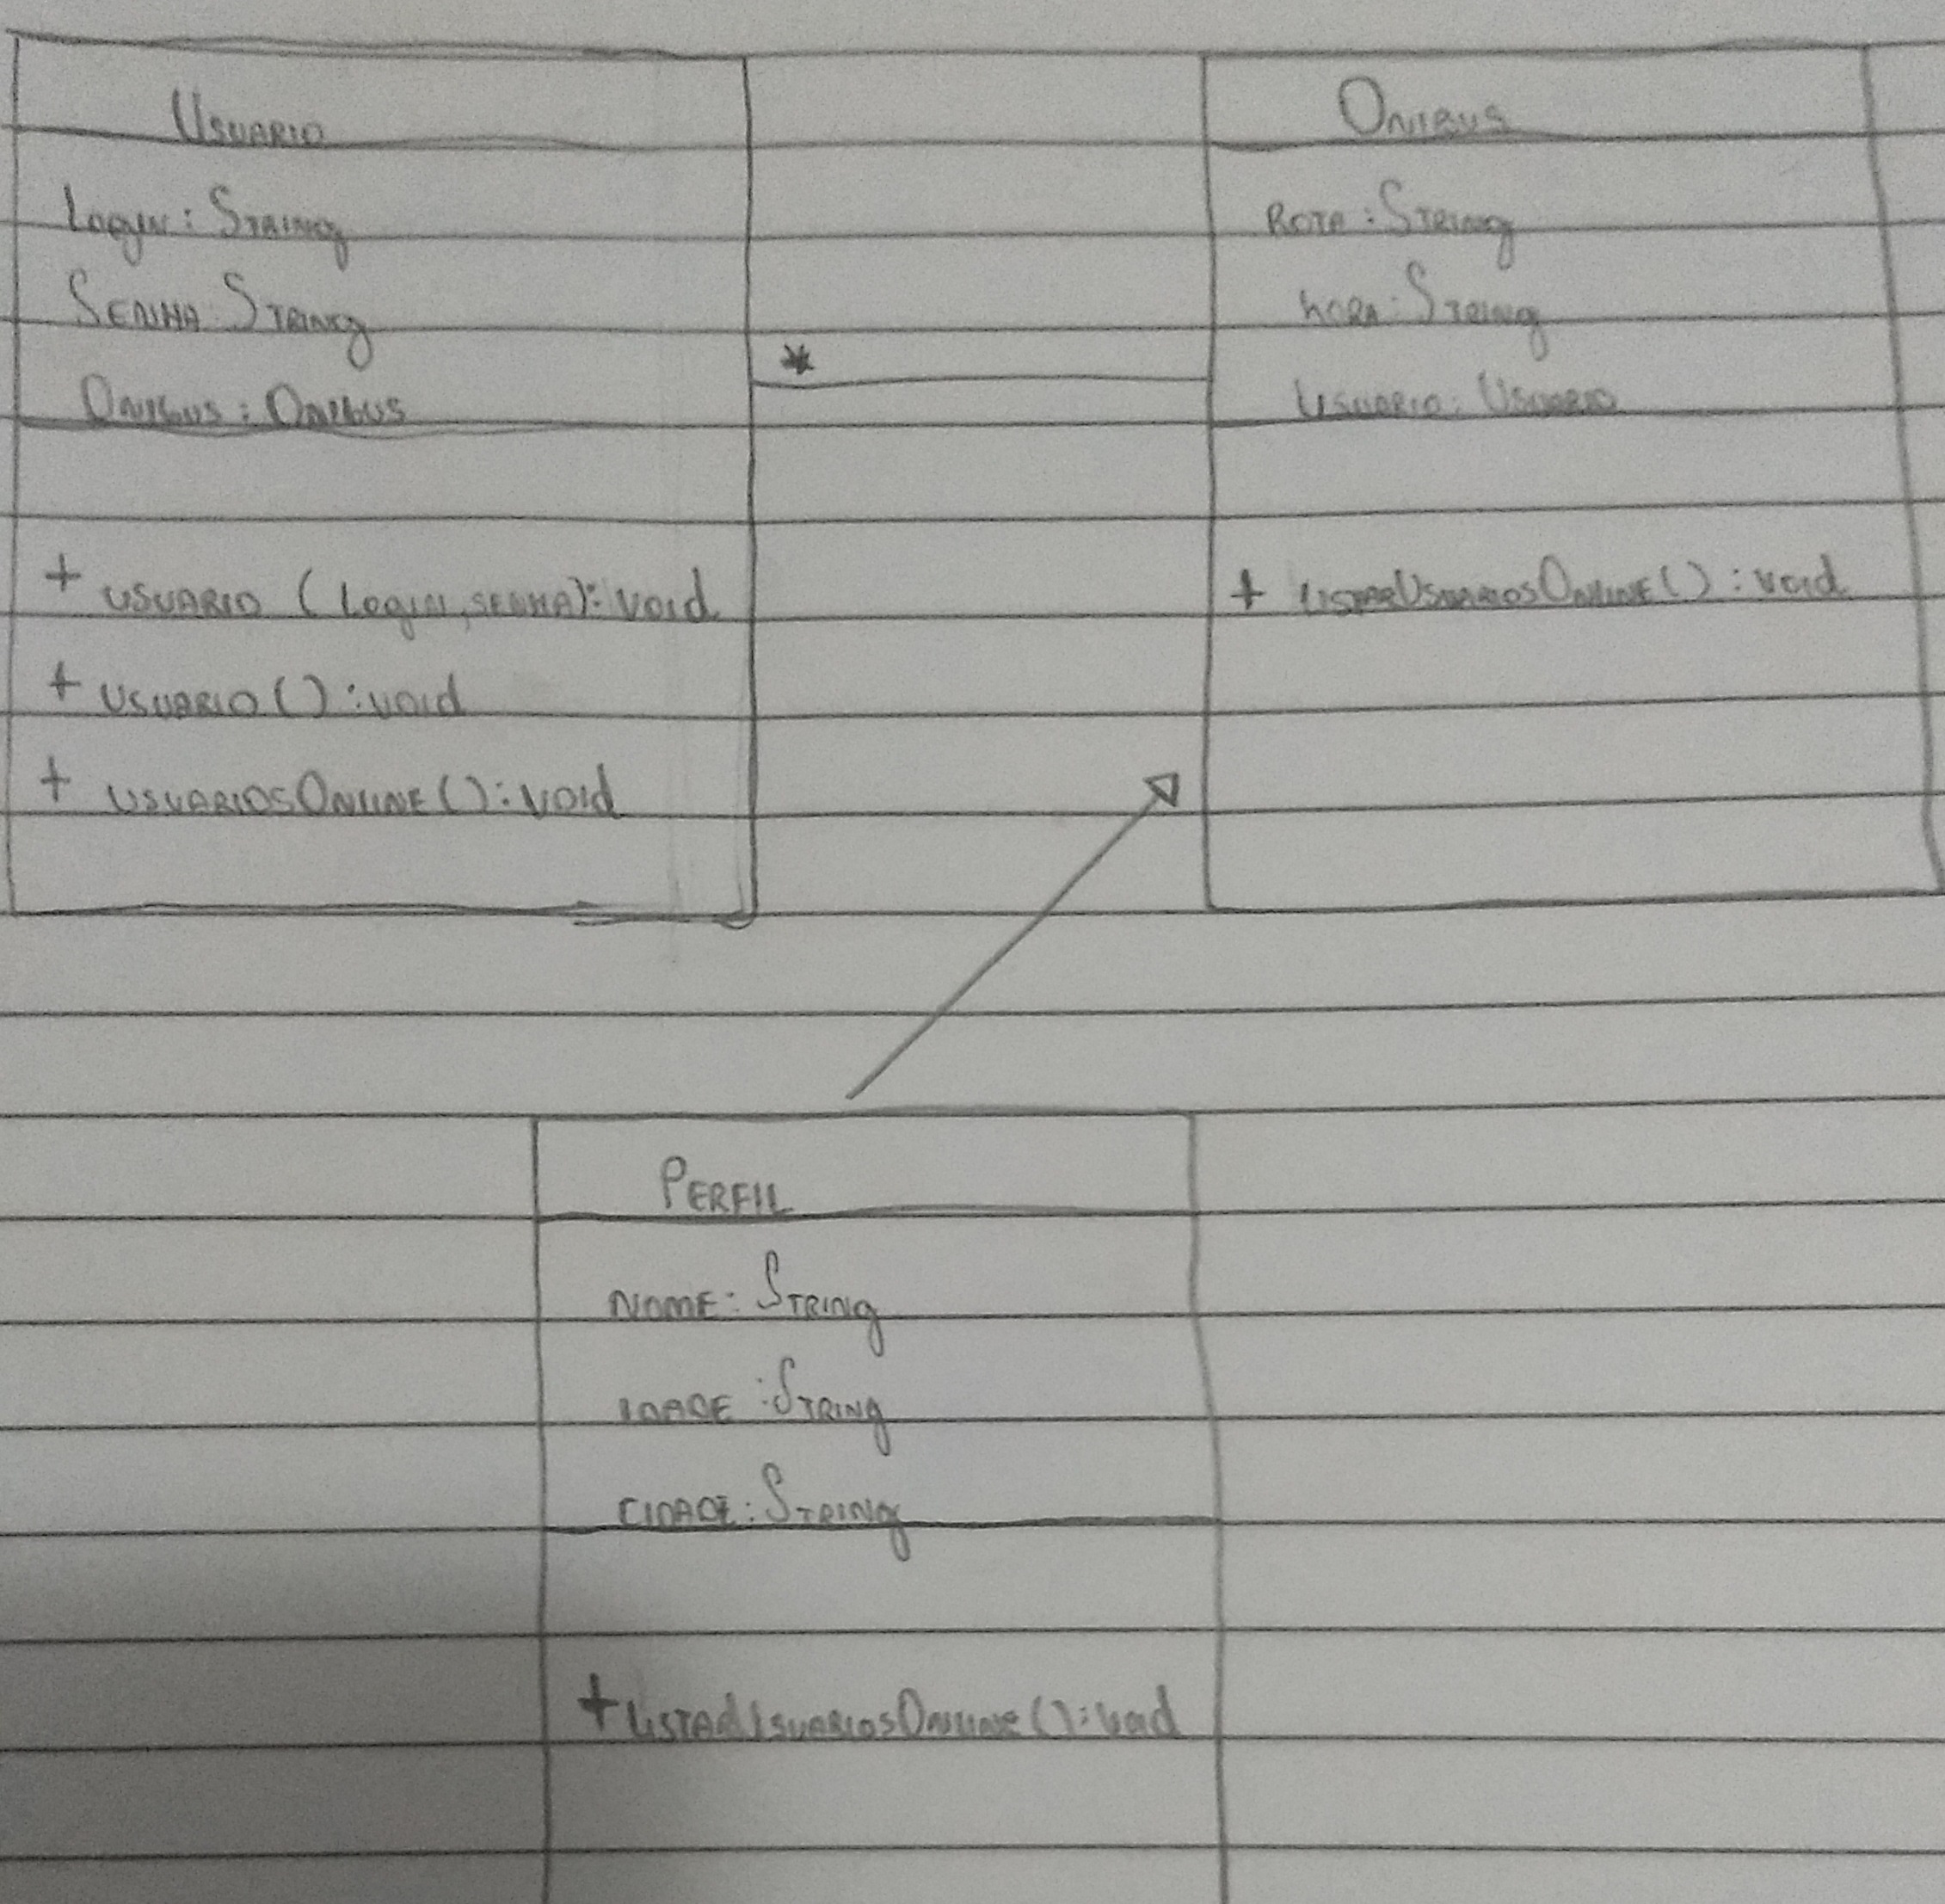 Usuario
Login: String
Senha: String
Onibus: Onibus
+ usuario (Login, senha): void
+ usuario(): void
+ usuariosOnline(): void
*
Onibus
Rota: String
hora: String
Usuario: Usuario
+ listarUsuariosOnline(): void
Perfil
Nome: String
idade: String
cidade: String
+ listarUsuariosOnline(): void